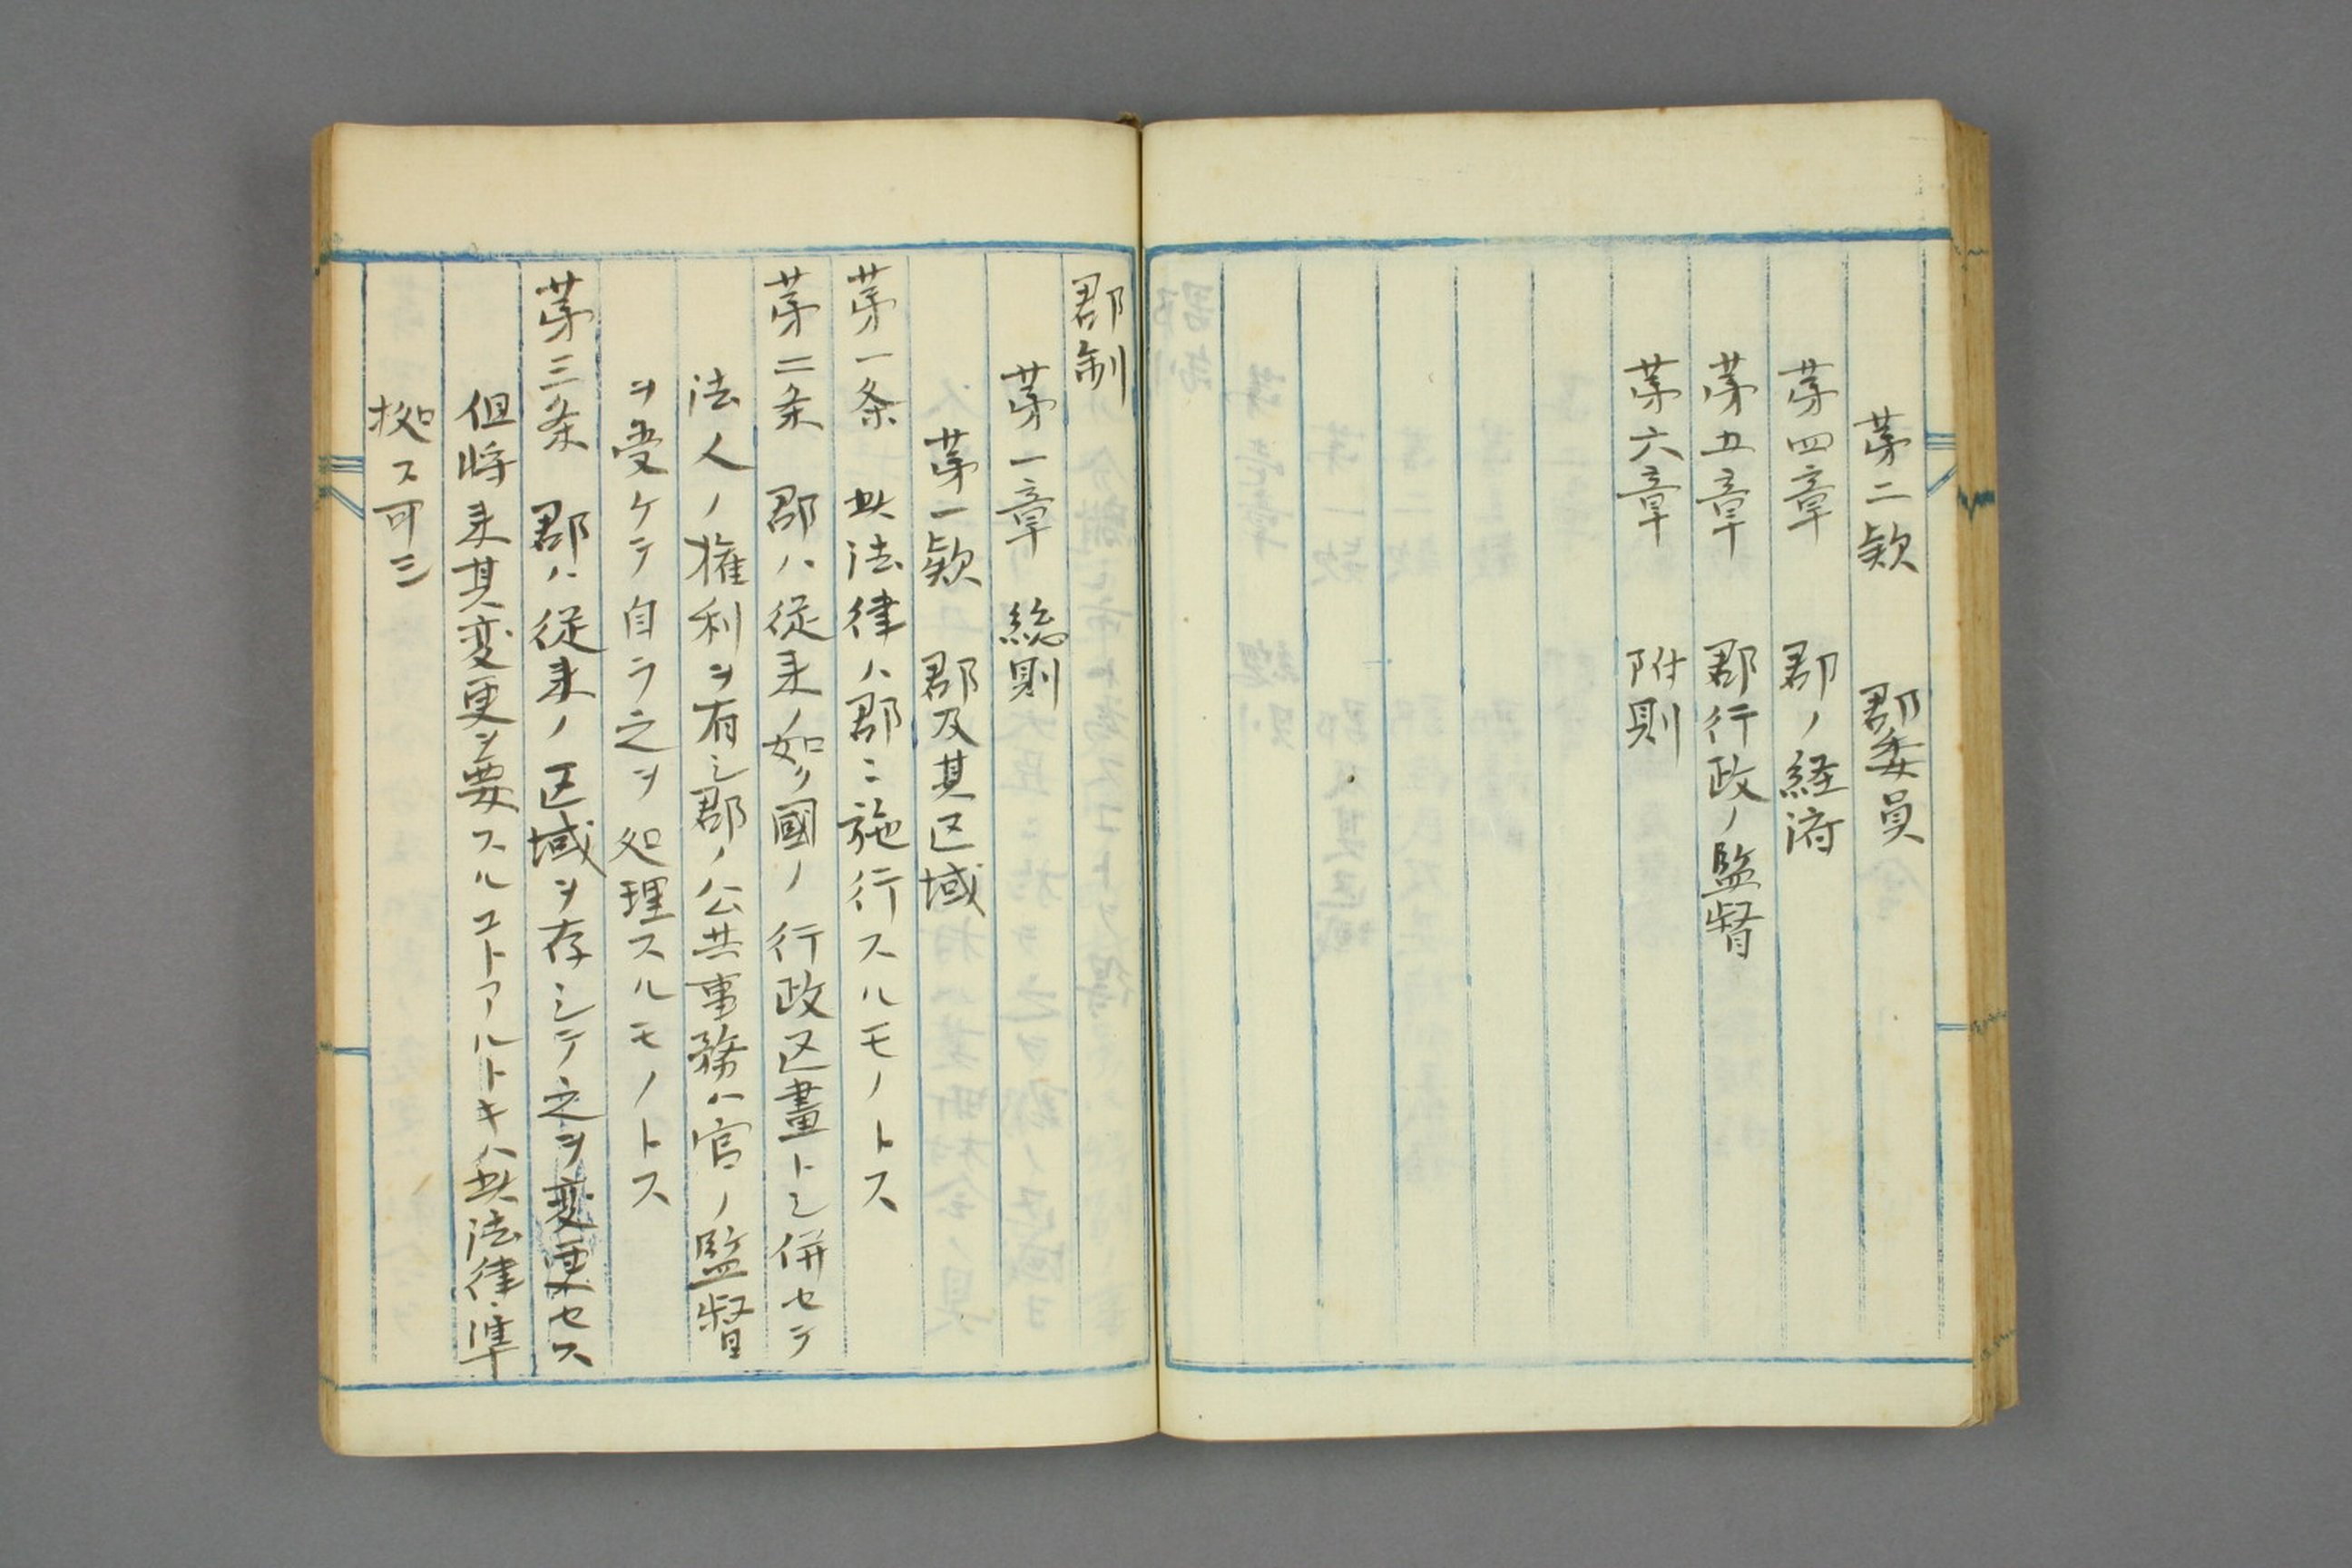 第二欵　郡委員
第四章　郡ノ経済
第五章　郡行政ノ監督
第六章　附則
郡制
第一章　総則
第一欵　郡及其区域
第一条　此法律ハ郡ニ施行スルモノトス
第二条　郡ハ従来ノ如ク國ノ行政区畫トシ併セテ
法人ノ権利ヲ有シ郡ノ公共事務ハ官ノ監督
ヲ受ケテ自ラ之ヲ処理スルモノトス
第三条　郡ハ従来ノ区域ヲ存シテ之ヲ変更セス
但将来其変更ヲ要スルコトアルトキハ此法律ニ準
拠ス可シ